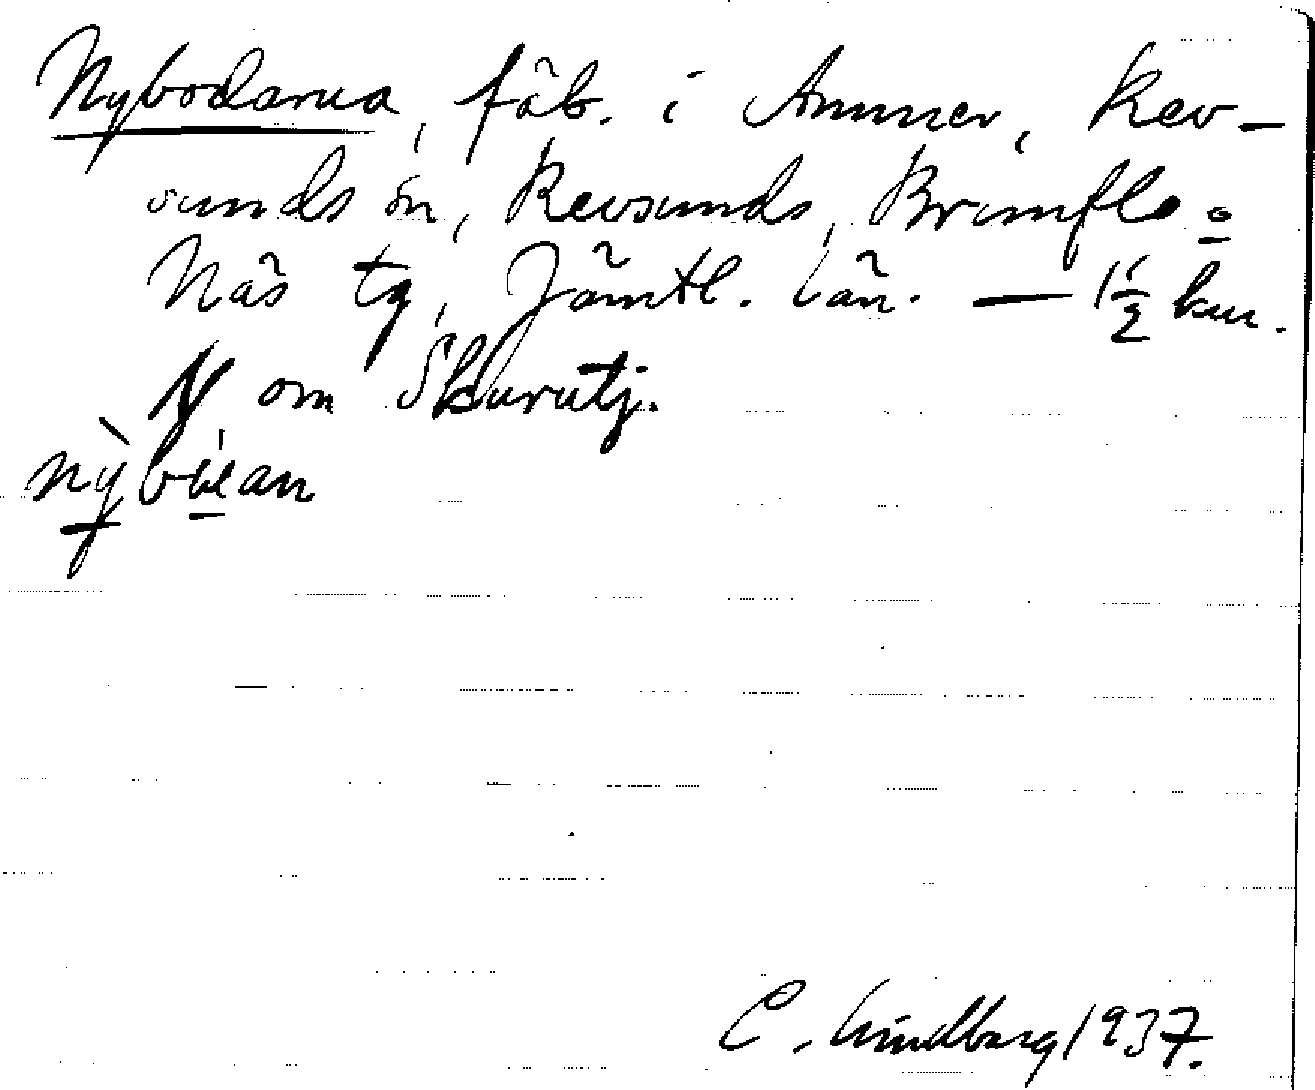 Nybodarna, fäb. i Ammer, Rev-
sunds sn, Revsunds, Brunflo o
Näs tg, Jämtl. län. — 1 1/2 km.
N om Skurutj.
C. Lindberg 1937.